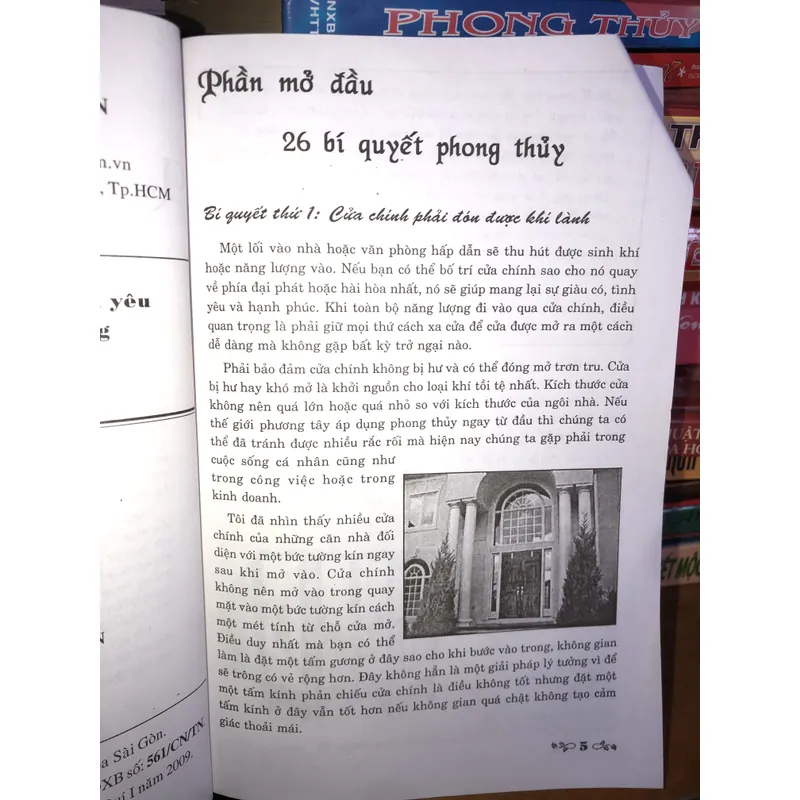 NXB
VHTT
PHONG THỦY
N
n.vn
, Tp.HCM
yêu
g
N
a Sài Gòn.
XB số: 561/CN/TN.
uí I năm 2009.
Phần mở đầu
26 bí quyết phong thủy
Bí quyết thứ 1: Cửa chính phải đón được khí lành
Một lối vào nhà hoặc văn phòng hấp dẫn sẽ thu hút được sinh khí
hoặc năng lượng vào. Nếu bạn có thể bố trí cửa chính sao cho nó quay
về phía đại phát hoặc hài hòa nhất, nó sẽ giúp mang lại sự giàu có, tình
yêu và hạnh phúc. Khi toàn bộ năng lượng đi vào qua cửa chính, điều
quan trọng là phải giữ mọi thứ cách xa cửa để cửa được mở ra một cách
dễ dàng mà không gặp bất kỳ trở ngại nào.
Phải bảo đảm cửa chính không bị hư và có thể đóng mở trơn tru. Cửa
bị hư hay khó mở là khởi nguồn cho loại khí tồi tệ nhất. Kích thước cửa
không nên quá lớn hoặc quá nhỏ so với kích thước của ngôi nhà. Nếu
thế giới phương tây áp dụng phong thủy ngay từ đầu thì chúng ta có
thể đã tránh được nhiều rắc rối mà hiện nay chúng ta gặp phải trong
cuộc sống cá nhân cũng như
trong công việc hoặc trong
kinh doanh.
Tôi đã nhìn thấy nhiều cửa
chính của những căn nhà đối
diện với một bức tường kín ngay
sau khi mở vào. Cửa chính
không nên mở vào trong quay
mặt vào một bức tường kín cách
một mét tính từ chỗ cửa mở.
Điều duy nhất mà bạn có thể
làm là đặt một tấm gương ở đây sao cho khi bước vào trong, không gian
sẽ trông có vẻ rộng hơn. Đây không hẳn là một giải pháp lý tưởng vì để
một tấm kính phản chiếu cửa chính là điều không tốt nhưng đặt một
tấm kính ở đây vẫn tốt hơn nếu không gian quá chật không tạo cảm
giác thoải mái.
5